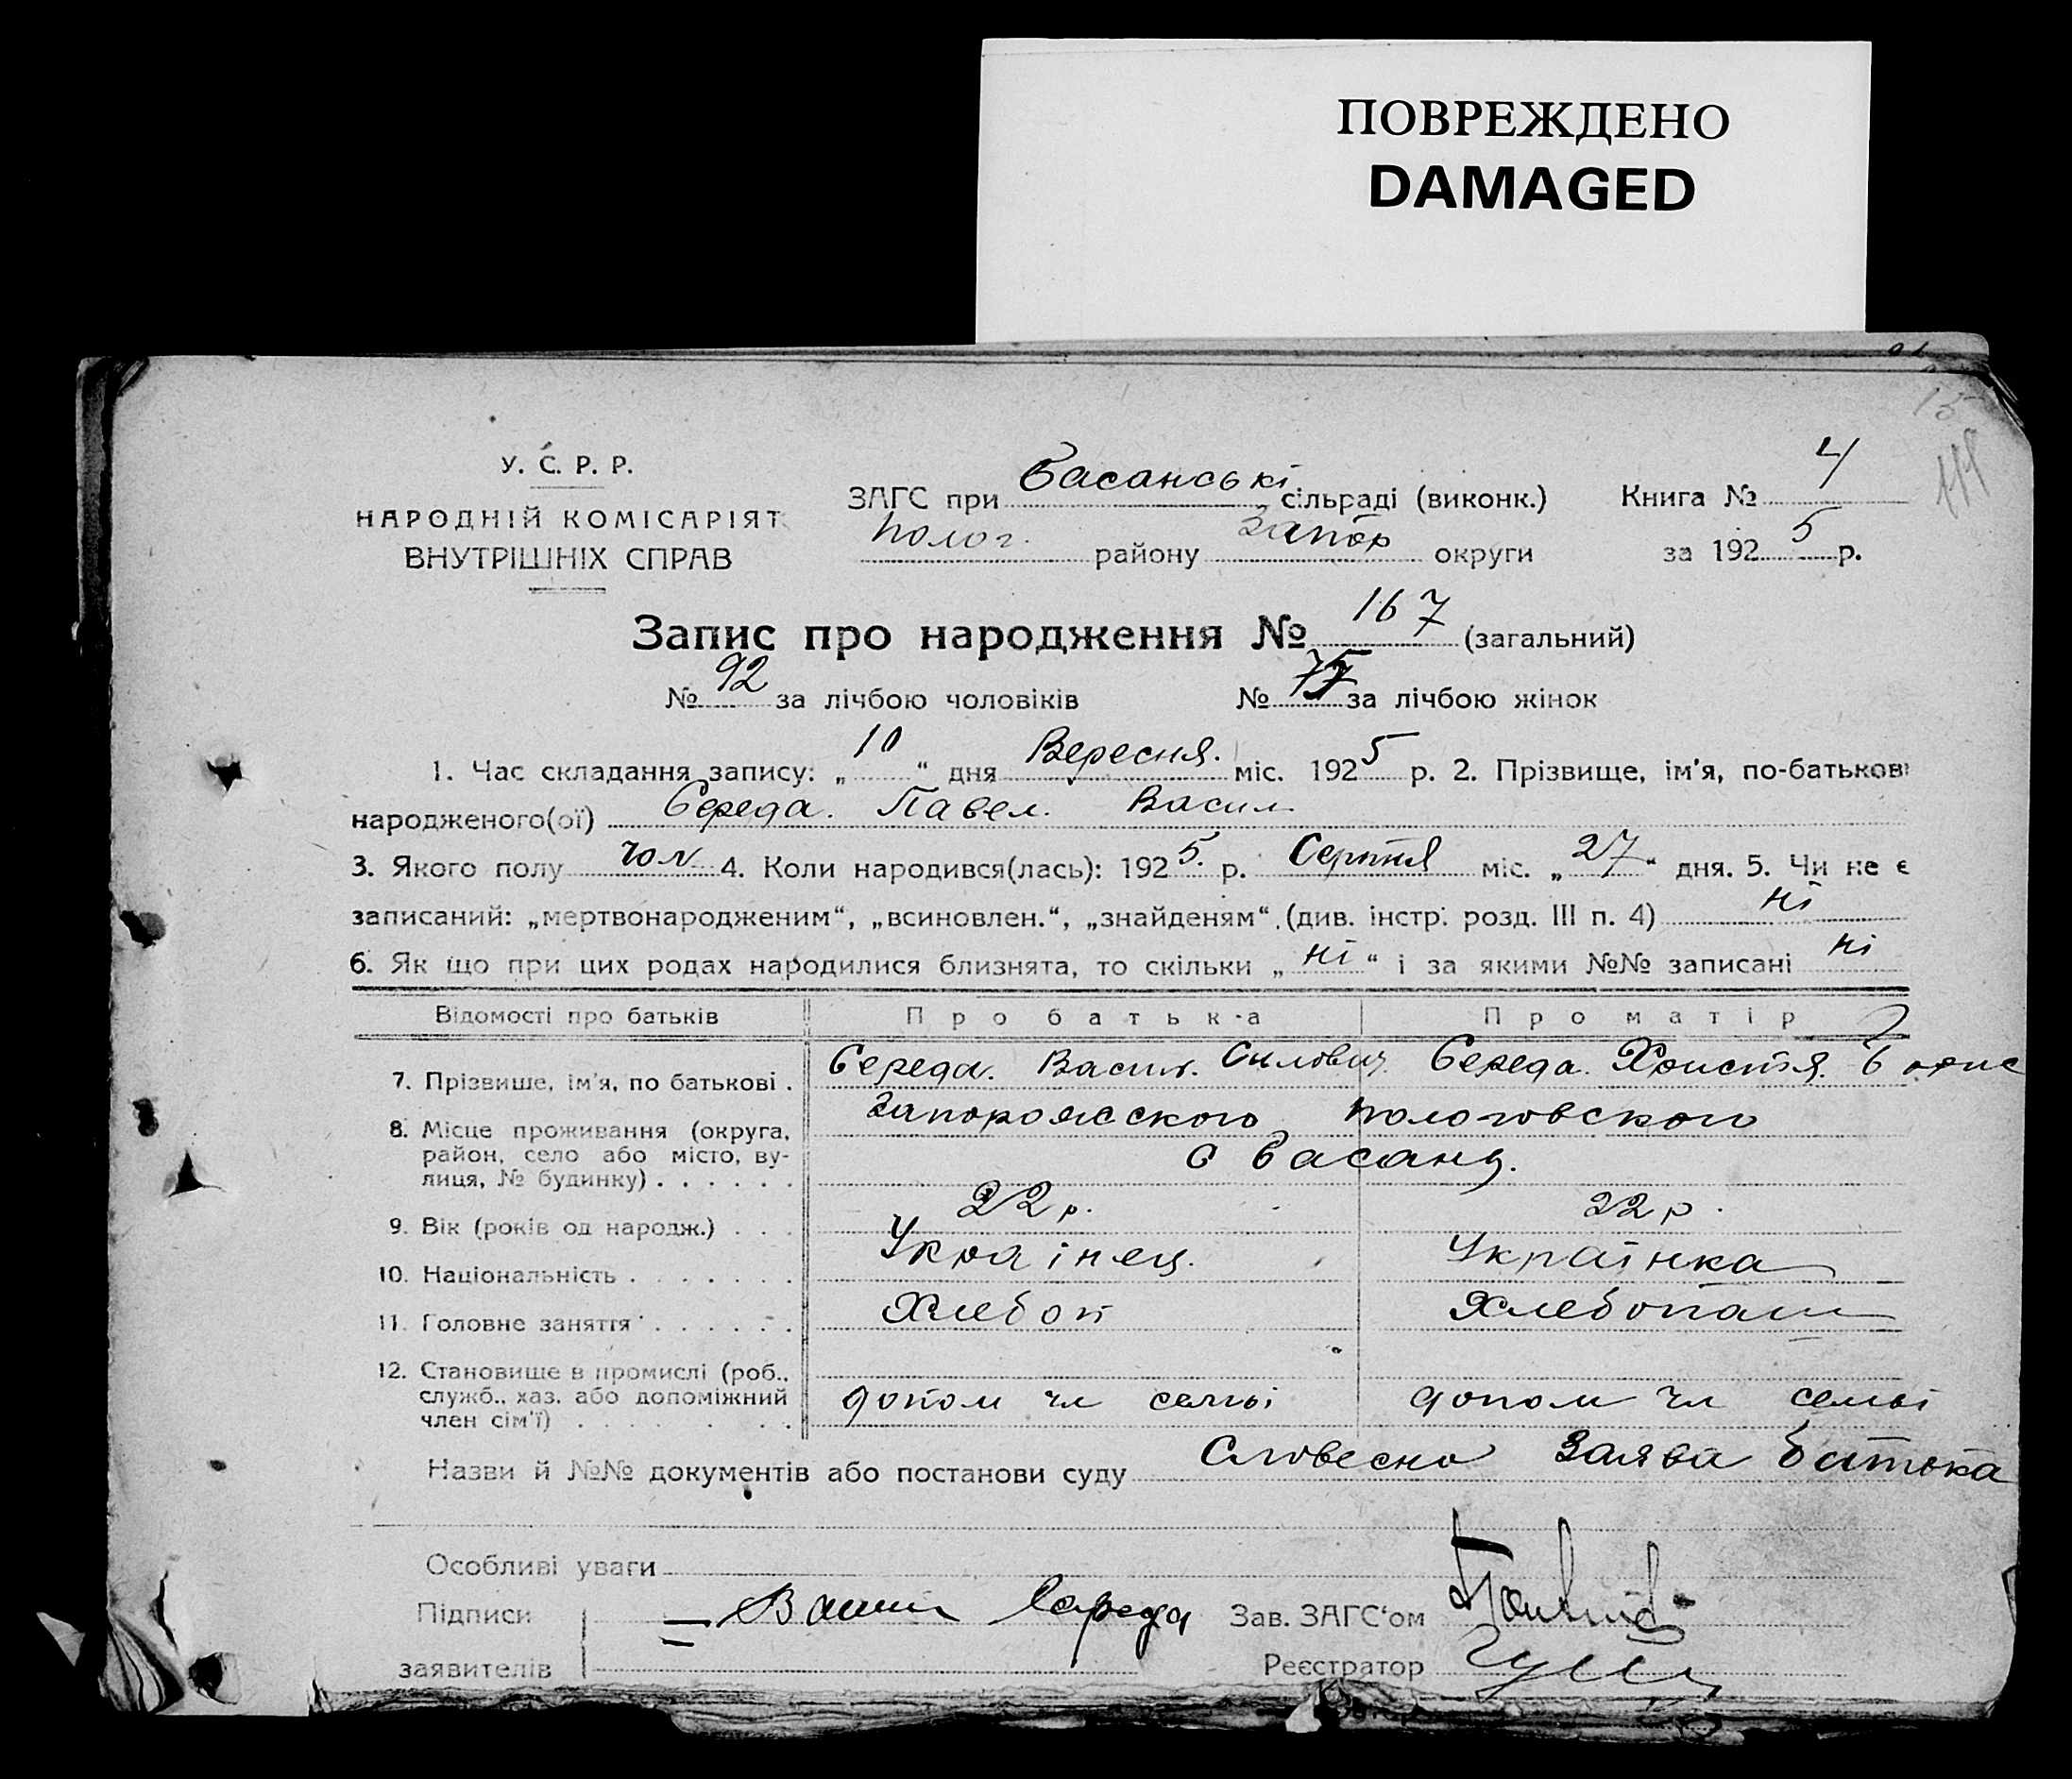 ПОВРЕЖДЕНО
DAMAGED
15
У. С. Р. Р.
НАРОДНІЙ КОМІСАРІЯТ
ВНУТРІШНІХ СПРАВ
ЗАГС при Басанські сільраді (виконк.) Книга № 4
Полог. району Запор округи за 1925 р.
Запис про народження № 167 (загальний)
№ 92 за лічбою чоловіків № за лічбою жінок
1. Час складання запису: „10“ дня Вересня. міс. 1925 р. 2. Прізвище, ім'я, по-батькові
народженого(ої) Середа. Павел. Васил
3. Якого полу чол 4. Коли народився(лась): 1925. р. Серпня міс. „27“ дня. 5. Чи не є
записаний: „мертвонародженим“, „всиновлен.“, „знайденям“ (див. інстр. розд. III п. 4) ні
6. Як що при цих родах народилися близнята, то скільки „ні“ і за якими №№ записані ні
Відомості про батьків Про батька Про матір
7. Прізвише, ім'я, по батькові . Середа. Васил. Силович. Середа. Христя.
8. Місце проживання (округа, район, село або місто, вулиця, № будинку) . . . . . . Запорожского Пологовского
с Басань.
9. Вік (років од народж.) . . . 22 р. 22 р.
10. Національність . . . . . . . Украінец. Украінка
11. Головне заняття . . . . . . Хлебоп Хлебопаш
12. Становище в промислі (роб., служб., хаз. або допоміжний член сім'ї) . . . . . . допом чл семьі допом чл семьі
Назви й №№ документів або постанови суду Словесно Заява батька
Особливі уваги
Підписи Василь Середа Зав. ЗАГС'ом
заявителів Реєстратор